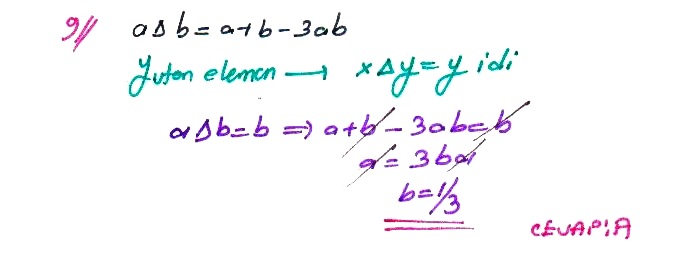 9// a∆b=a+b-3ab
Yutan eleman → x∆y=y idi
a∆b=b ⇒ a+b-3ab=b
a=3ba
b=1/3
CEVAP:A